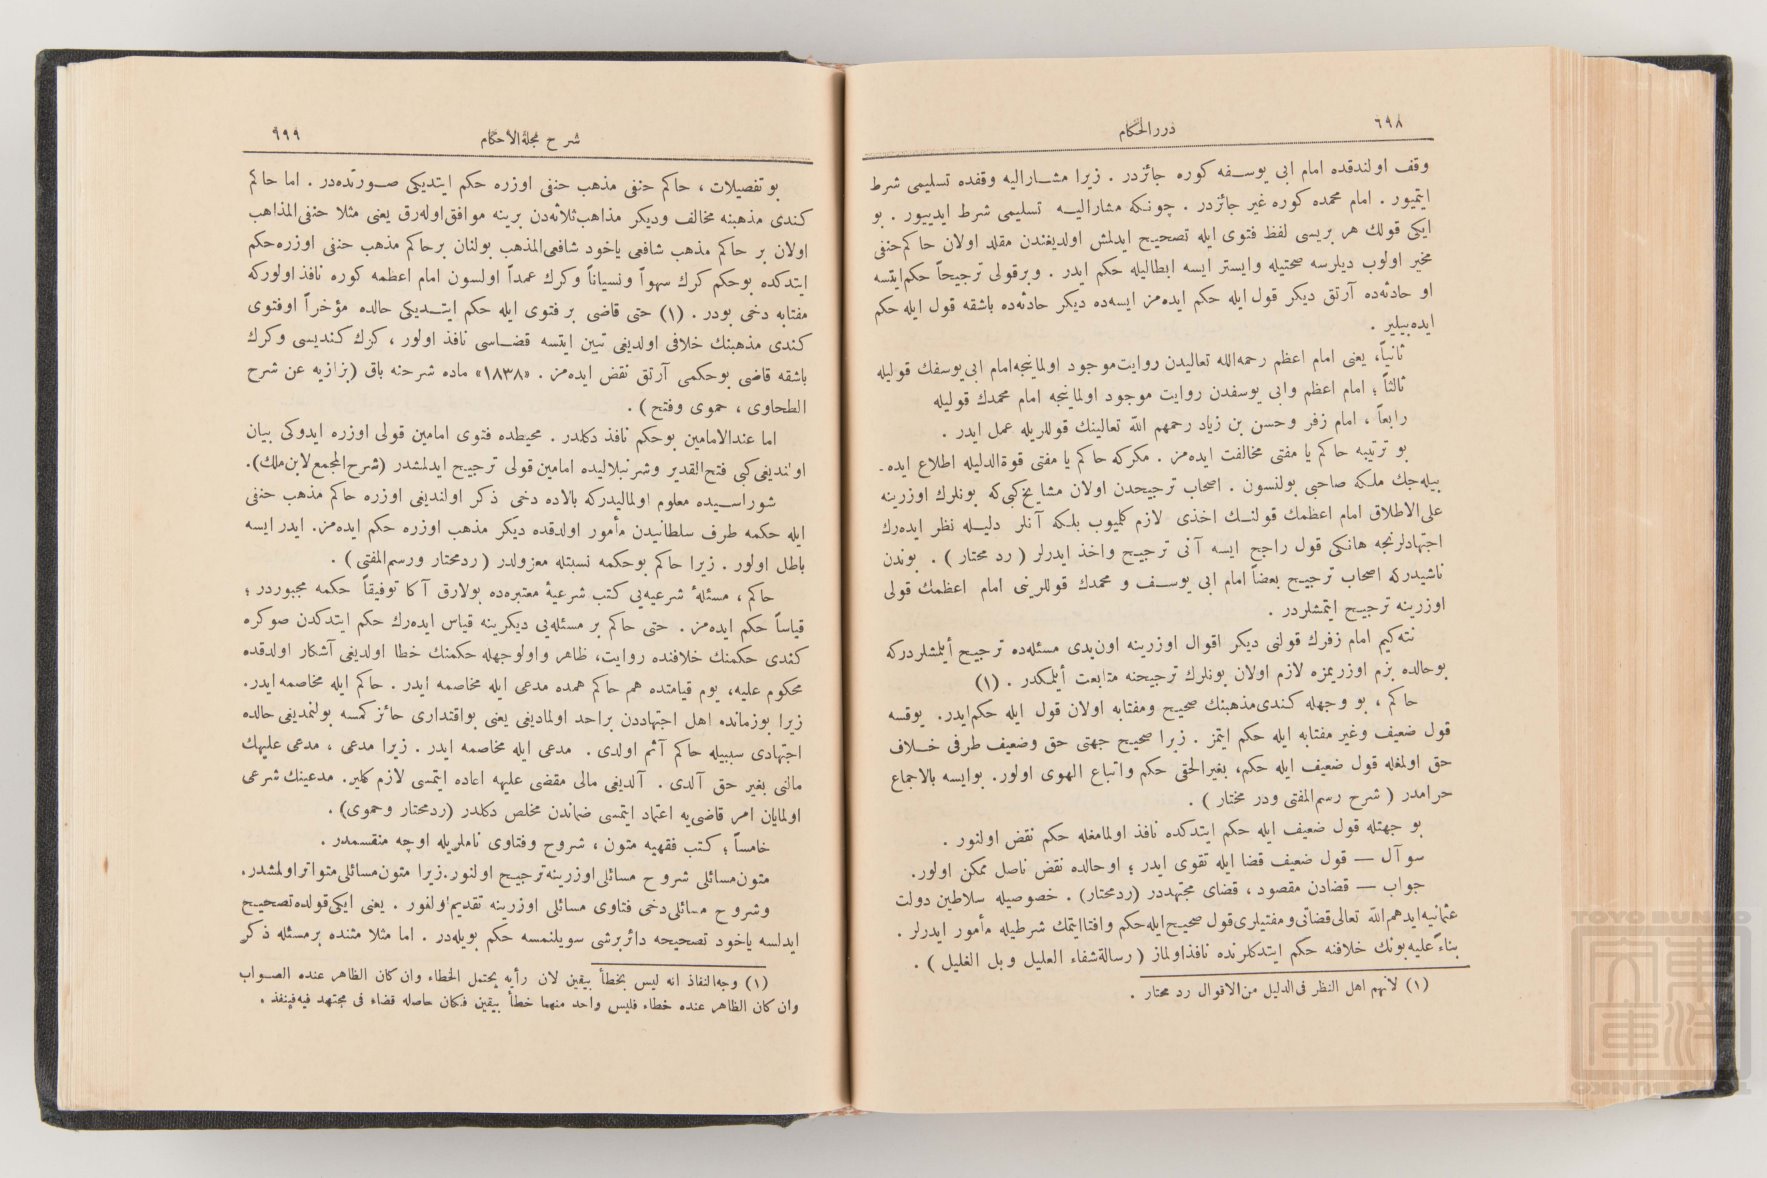 ٦٩٨
دررالحكام
وقف اولندقده امام ابى يوسفه كوره جائزدر . زيرا مشاراليه وقفده تسليمى شرط
ايتميور . امام محمده كوره غير جائزدر . چونكه مشاراليه تسليمى شرط ايدييور . بو
ايكى قولك هر بريسى لفظ فتوى ايله تصحيح ايدلمش اولديغندن مقلد اولان حاكم حنفى
مخير اولوب ديلرسه صحتيله وايستر ايسه ابطاليله حكم ايدر . وبرقولى ترجيحاً حكم ايتسه
او حادثه‌ده آرتق ديكر قول ايله حكم ايده‌مز ايسه‌ده ديكر حادثه‌ده باشقه قول ايله حكم
ايده‌بيلير .
ثانياً، يعنى امام اعظم رحمه‌الله تعاليدن روايت موجود اولماينجه امام ابى يوسفك قوليله
ثالثاً ؛ امام اعظم وابى يوسفدن روايت موجود اولماينجه امام محمدك قوليله
رابعاً ، امام زفر وحسن بن زياد رحمهم الله تعالينك قوللريله عمل ايدر .
بو ترتيبه حاكم يا مفتى مخالفت ايده‌مز . مكركه حاكم يا مفتى قوةالدليله اطلاع ايده‌ـ
بيله‌جك ملكه صاحبى بولنسون . اصحاب ترجيحدن اولان مشايخ كبى كه بونلرك اوزرينه
على‌الاطلاق امام اعظمك قولنك اخذى لازم كليوب بلكه آنلر دليله نظر ايده‌رك
اجتهادلرنجه هانكى قول راجح ايسه آنى ترجيح واخذ ايدرلر ( رد محتار ) . بوندن
ناشيدركه اصحاب ترجيح بعضاً امام ابى يوسف و محمدك قوللرينى امام اعظمك قولى
اوزرينه ترجيح ايتمشلردر .
نته‌كيم امام زفرك قولنى ديكر اقوال اوزرينه اون‌يدى مسئله‌ده ترجيح أيلمشلردركه
بوحالده بزم اوزريمزه لازم اولان بونلرك ترجيحنه متابعت أيلمكدر . (١)
حاكم ، بو وجهله كندى مذهبنك صحيح ومفتابه اولان قول ايله حكم ايدر. يوقسه
قول ضعيف وغير مفتابه ايله حكم ايتمز . زيرا صحيح جهتى حق وضعيف طرفى خلاف
حق اولمغله قول ضعيف ايله حكم، بغيرالحق حكم واتباع الهوى اولور. بوايسه بالاجماع
حرامدر ( شرح رسم‌المفتى ودر مختار ) .
بو جهتله قول ضعيف ايله حكم ايتدكده نافذ اولمامغله حكم نقض اولنور .
سوآل — قول ضعيف قضا ايله تقوى ايدر ؛ اوحالده نقض ناصل ممكن اولور.
جواب — قضادن مقصود ، قضاى مجتهددر (ردمحتار) . خصوصيله سلاطين دولت
عثمانيه ايدهم‌الله تعالى قضاتى و مفتيلرى قول صحيح ايله حكم وافتا ايتمك شرطيله مأمور ايدرلر .
بناءً عليه بونك خلافنه حكم ايتدكلرنده نافذ اولماز ( رسالة شفاء العليل وبل الغليل ) .
(١) لأنهم اهل النظر فى الدليل من الاقوال رد محتار .
شرح مجلةالأحكام
٩٩٩
بو تفصيلات ، حاكم حنفى مذهب حنفى اوزره حكم ايتديكى صورتده‌در . اما حاكم
كندى مذهبنه مخالف وديكر مذاهب ثلاثه‌دن برينه موافق اوله‌رق يعنى مثلا حنفى‌المذاهب
اولان بر حاكم مذهب شافعى ياخود شافعى‌المذهب بولنان برحاكم مذهب حنفى اوزره حكم
ايتدكده بوحكم كرك سهواً ونسياناً وكرك عمداً اولسون امام اعظمه كوره نافذ اولوركه
مفتابه دخى بودر . (١) حتى قاضى بر فتوى ايله حكم ايتديكى حالده مؤخراً اوفتوى
كندى مذهبنك خلافى اولديغى تبين ايتسه قضاسى نافذ اولور ، كرك كنديسى وكرك
باشقه قاضى بوحكمى آرتق نقض ايده‌مز . «١٨٣٨» ماده شرحنه باق (بزازيه عن شرح
الطحاوى ، حموى وفتح) .
اما عندالامامين بوحكم نافذ دكلدر . محيطده فتوى امامين قولى اوزره ايدوكى بيان
اولنديغى كبى فتح‌القدير وشرنبلاليده امامين قولى ترجيح ايدلمشدر (شرح‌المجمع لابن ملك).
شوراسيده معلوم اولماليدركه بالاده دخى ذكر اولنديغى اوزره حاكم مذهب حنفى
ايله حكمه طرف سلطانيدن مأمور اولدقده ديكر مذهب اوزره حكم ايده‌مز. ايدر ايسه
باطل اولور . زيرا حاكم بوحكمه نسبتله معزولدر ( ردمحتار ورسم‌المفتى ) .
حاكم ، مسئلهٔ شرعيه‌يى كتب شرعيهٔ معتبره‌ده بولارق آكا توفيقاً حكمه مجبوردر ؛
قياساً حكم ايده‌مز . حتى حاكم بر مسئله‌يى ديكرينه قياس ايده‌رك حكم ايتدكدن صوكره
كندى حكمنك خلافنده روايت، ظاهر واولوجهله حكمنك خطا اولديغى آشكار اولدقده
محكوم عليه، يوم قيامتده هم حاكم همده مدعى ايله مخاصمه ايدر . حاكم ايله مخاصمه ايدر.
زيرا بوزمانده اهل اجتهاددن براحد اولماديغى يعنى بواقتدارى حائز كمسه بولنمديغى حالده
اجتهادى سببيله حاكم آثم اولدى . مدعى ايله مخاصمه ايدر . زيرا مدعى ، مدعى عليهك
مالنى بغير حق آلدى . آلديغى مالى مقضى عليهه اعاده ايتمسى لازم كلير. مدعينك شرعى
اولمايان امر قاضى‌يه اعتماد ايتمسى ضماندن مخلص دكلدر (ردمحتار وحموى) .
خامساً ؛ كتب فقهيه متون ، شروح وفتاوى ناملريله اوچه منقسمدر .
متون مسائلى شروح مسائلى اوزرينه ترجيح اولنور. زيرا متون مسائلى متواتر اولمشدر.
وشروح مسائلى دخى فتاوى مسائلى اوزرينه تقديم اولنور . يعنى ايكى قولده تصحيح
ايدلسه ياخود تصحيحه دائر برشى سويلنمسه حكم بويله‌در . اما مثلا متنده بر مسئله ذكر
(١) وجه‌النفاذ انه ليس بخطأ بيقين لان رأيه يحتمل الخطاء وان كان الظاهر عنده الصواب
وان كان الظاهر عنده خطاء فليس واحد منهما خطأ بيقين فكان حاصله قضاء فى مجتهد فيه فينفذ .
TOYO BUNKO
東洋文庫
TOYO BUNKO